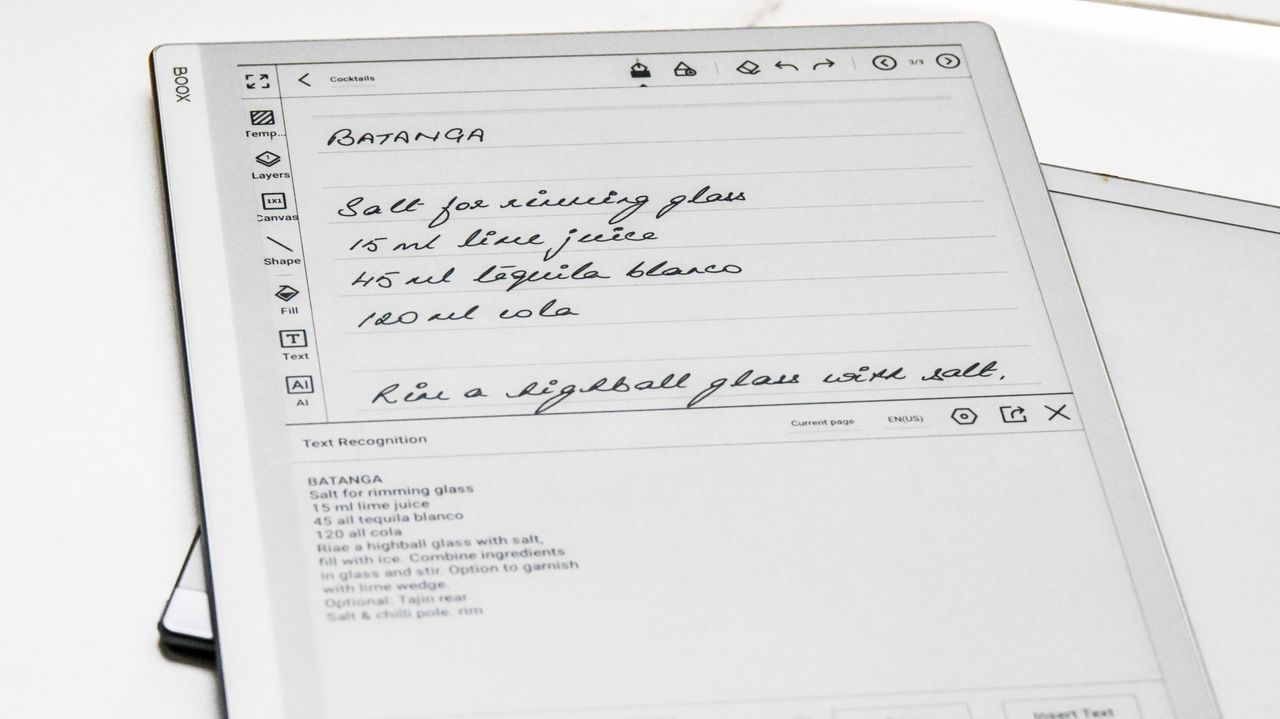 BOOX
Cocktails
3/3
Temp...
Layers
1X1
Canvas
Shape
Fill
T
Text
AI
AI
BATANGA
Salt for rimming glass
15 ml lime juice
45 ml tequila blanco
120 ml cola
Rim a highball glass with salt,
Text Recognition
Current page
EN(US)
BATANGA
Salt for rimming glass
15 ml lime juice
45 ail tequila blanco
120 all cola
Riae a highball glass with salt,
fill with ice. Combine ingredients
in glass and stir. Option to garnish
with lime wedge.
Optional: Tajin rear
Salt & chilli pole. rim
Insert Text